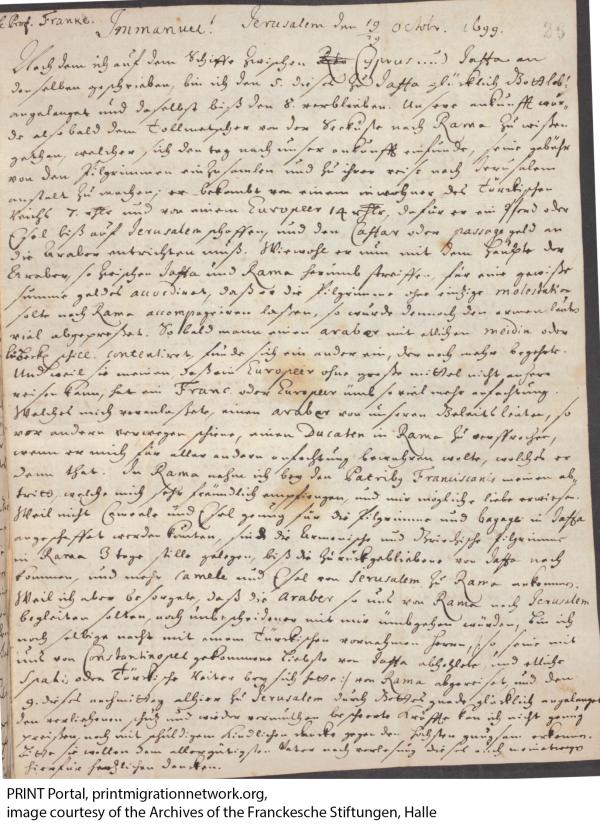 Prof. Franke. Immanuel! Jerusalem den 19 Octobr. 1699. 23
29
Nach dem ich auf dem Schiffe zwischen Cyprus und Jaffa an
denselben geschrieben, bin ich den 5. dieses zu Jaffa glücklich Gottlob!
angelanget und daselbst biß den 8. verblieben. Unsere ankunfft wur-
de alsobald dem Dollmetscher von der Seeküste nach Rama zu wißen
gethan, welcher sich den tag nach unser ankunfft einfunde, seine gebühr
von den Pilgrimmen einzusamlen und zu ihrer reise nach Jerusalem
anstalt zu machen; er bekombt von einem inwohner des Türckischen
Reichs 7. rthr und von einem Europeer 14 rthr, dafür er ein Pferd oder
Esel biß auf Jerusalem schaffen, und den Caffar oder passagegeld an
die Araber entrichten muß. Wiewohl er nun mit dem Haupte der
Araber, so zwischen Jaffa und Rama herumb streiffen, für eine gewiße
summe geldes accordiret, daß er die Pilgrimme ohne einzige molestation
solte nach Rama accompagniren laßen, so wurde dennoch den armen leuten
viel abgepreßet. So bald mann einen araber mit etlichen meidin oder
contentiret, funde sich ein ander ein, der noch mehr begehrte.
Und weil sie meinen, daß ein Europeer ohne große mittel nicht
reisen kann, hat ein Franc oder Europeer umb so viel mehr anfechtung.
Welches mich veranlaßete, einen araber von unseren Geleits leuten, so
vor andern verwegen schiene, einen Ducaten in Rama zu versprechen,
wenn er mich für aller andern anfechtung bewahren wolte, welches er
denn that. In Rama nahm ich bey den Patribus Franciscanis meinen ab-
tritt, welche mich sehr freundlich empfiengen, und mir mögliche liebe erwiesen.
Weil nicht Cameele und Esel genug für die Pilgrimme und bagage in Jaffa
angeschaffet werden kunten, sind die Armenische und Griechische Pilgrimme
in Rama 3 tage stille gelegen, biß die zurückgebliebene von Jaffa nach
kommen, und mehr Camele und Esel von Jerusalem zu Rama ankommen.
Weil ich aber besorgete, daß die Araber so uns von Rama nach Jerusalem
begleiten solten, noch unbescheidener mit mir umbgehen würden, bin ich
noch selbige nacht mit einem Türckischen vornehmen Herrn, so seine mit
uns von Constantinopel gekommene Liebste von Jaffa abhohlete, und etliche
Spahi oder Türckische Reiter bey sich hatte von Rama abgereiset, und den
9. dieses nachmittag alhier zu Jerusalem durch Gottes gnade glücklich angelanget
den verliehenen schutz und wieder vermuthen bescherte Kräffte kan ich nicht genug
preisen, noch mit schuldigem kindlichen dancke gegen den Höhesten gnugsam erkennen.
sie wollen dem allergütigsten Vater nach verlesung dieses auch meinetwegen
hierfür hertzlichen dancken.
PRINT Portal, printmigrationnetwork.org,
image courtesy of the Archives of the Franckesche Stiftungen, Halle